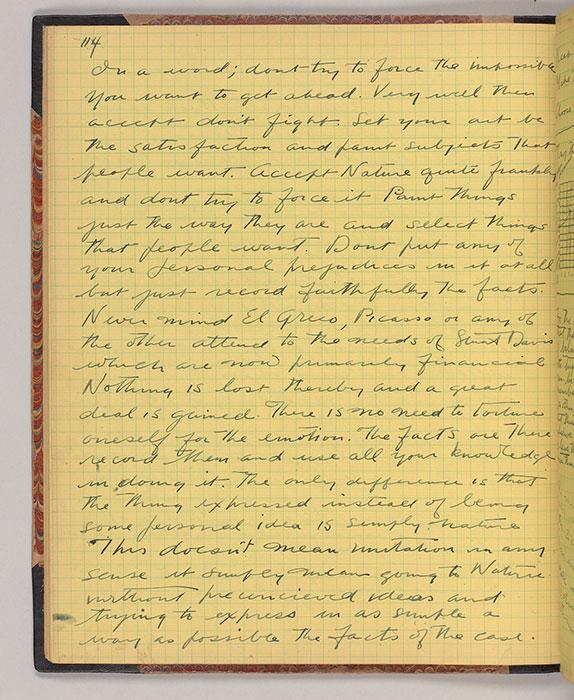 114
In a word; dont try to force the impossible
You want to get ahead. Very well then
accept don't fight. Let your art be
the satisfaction and paint subjects that
people want. Accept Nature quite frankly
and dont try to force it Paint things
just the way they are and select things
that people want. Dont put any of
your personal prejudices in it at all
but just record faithfully the facts.
Never mind El Greco, Picasso or any of
the other attend to the needs of Stuart Davis
which are now primarily financial
Nothing is lost thereby and a great
deal is gained. There is no need to torture
oneself for the emotion. The facts are there
record them and use all your knowledge
in doing it. The only difference is that
the thing expressed instead of being
some personal idea is simply nature
This doesn't mean imitation in any
sense it simply means going to Nature
without preconcieved ideas and
trying to express in as simple a
way as possible the facts of the case.